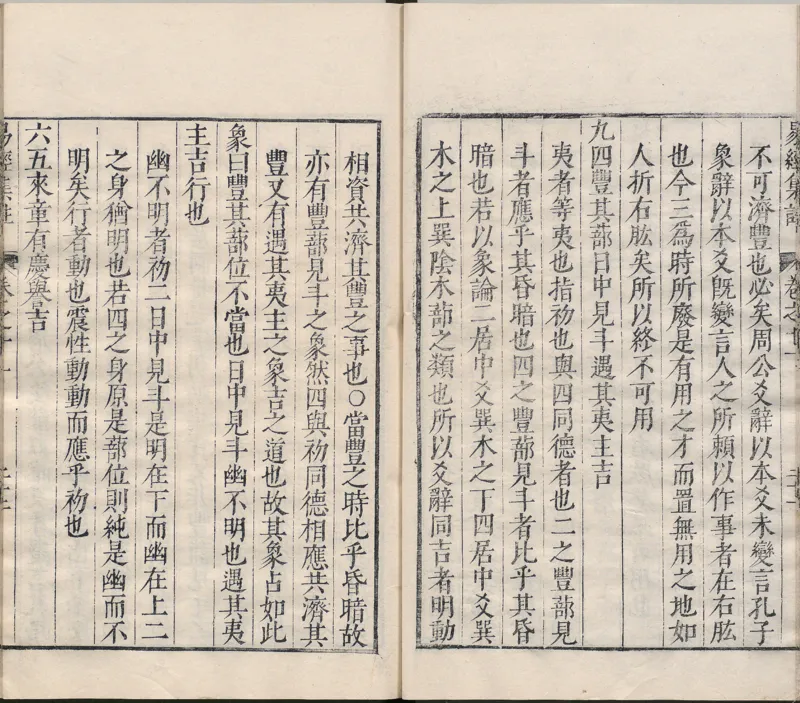 不可濟豐也必矣周公爻辭以本爻未變言孔子
象辭以本爻既變言人之所賴以作事者在右肱
也今三為時所廢是有用之才而置無用之地如
人折右肱矣所以終不可用
九四豐其蔀日中見斗遇其夷主吉
夷者等夷也指初也與四同德者也二之豐蔀見
斗者應乎其昏暗也四之豐蔀見斗者比乎其昏
暗也若以象論二居中爻巽木之下四居中爻巽
木之上巽陰木蔀之類也所以爻辭同吉者明動
相資共濟其豐之事也○當豐之時比乎昏暗故
亦有豐蔀見斗之象然四與初同德相應共濟其
豐又有遇其夷主之象吉之道也故其象占如此
象曰豐其蔀位不當也日中見斗幽不明也遇其夷
主吉行也
幽不明者初二日中見斗是明在下而幽在上二
之身猶明也若四之身原是蔀位則純是幽而不
明矣行者動也震性動動而應乎初也
六五來章有慶譽吉
易經集註